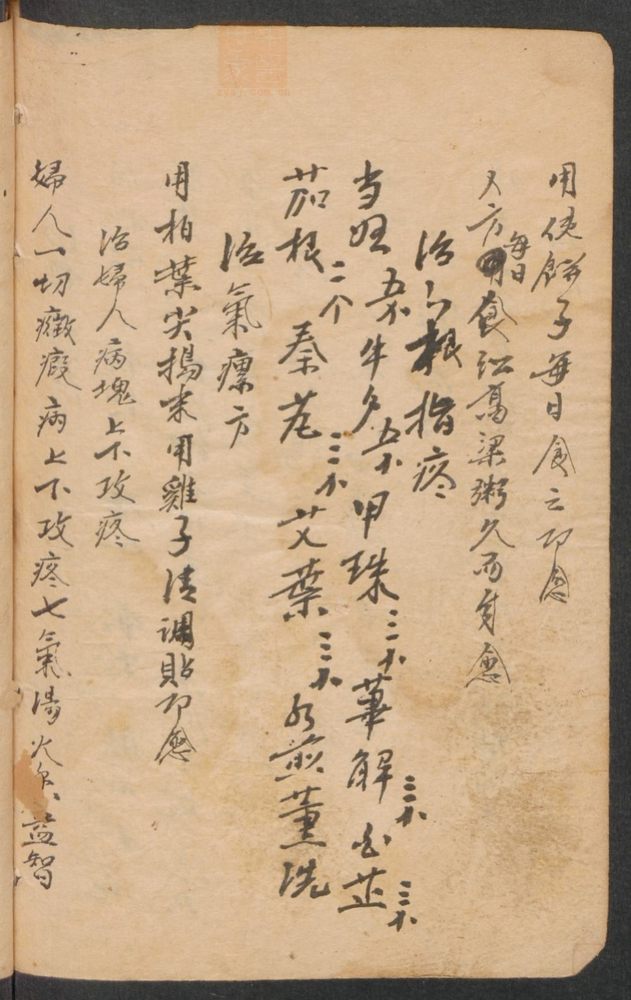 用使餅子每日食之即愈
又方每日用食紅高粱粥久而自愈
治六根指疼
当歸 五个 牛夕 五个 甲珠 三个 萆解 三个 白芷 三个
茄根 二个 秦艽 三个 艾葉 三个 水煎薰洗
治氣瘰方
用柏葉尖搗末用雞子清調貼即愈
治婦人病塊上下攻疼
婦人一切癥瘕病上下攻疼七氣湯 益智